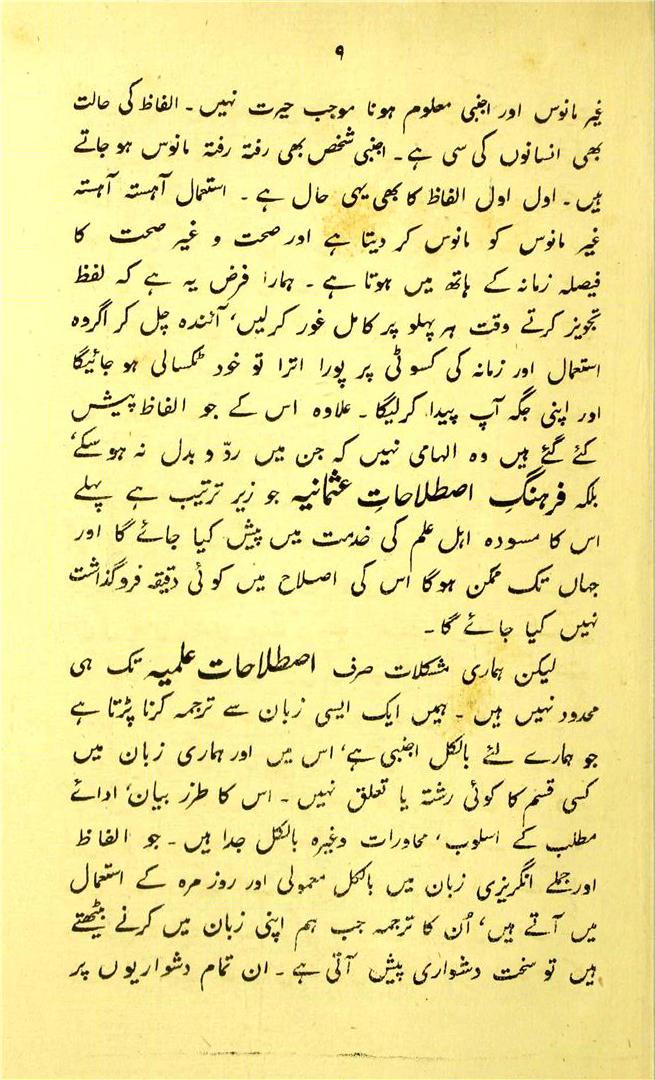 ۹
غیر مانوس اور اجنبی معلوم ہونا موجب حیرت نہیں ۔ الفاظ کی حالت
بھی انسانوں کی سی ہے ۔ اجنبی شخص بھی رفتہ رفتہ مانوس ہو جاتے
ہیں ۔ اول اول الفاظ کا بھی یہی حال ہے ۔ استعمال آہستہ آہستہ
غیر مانوس کو مانوس کر دیتا ہے اور صحت و غیر صحت کا
فیصلہ زمانہ کے ہاتھ میں ہوتا ہے ۔ ہمارا فرض یہ ہے کہ لفظ
تجویز کرتے وقت ہر پہلو پر کامل غور کرلیں، آئندہ چل کر اگر وہ
استعمال اور زمانہ کی کسوٹی پر پورا اترا تو خود ٹکسالی ہو جائیگا
اور اپنی جگہ آپ پیدا کرلیگا ۔ علاوہ اس کے جو الفاظ پیش
کئے گئے ہیں وہ الہامی نہیں کہ جن میں ردّ و بدل نہ ہو سکے،
بلکہ فرہنگِ اصطلاحاتِ عثمانیہ جو زیر ترتیب ہے پہلے
اس کا مسودہ اہل علم کی خدمت میں پیش کیا جائے گا اور
جہاں تک ممکن ہوگا اس کی اصلاح میں کوئی دقیقہ فروگذاشت
نہیں کیا جائے گا ۔
لیکن ہماری مشکلات صرف اصطلاحات علمیہ تک ہی
محدود نہیں ہیں ۔ ہمیں ایک ایسی زبان سے ترجمہ کرنا پڑتا ہے
جو ہمارے لئے بالکل اجنبی ہے، اس میں اور ہماری زبان میں
کسی قسم کا کوئی رشتہ یا تعلق نہیں ۔ اس کا طرز بیان، ادائے
مطلب کے اسلوب، محاورات وغیرہ بالکل جدا ہیں ۔ جو الفاظ
اور جملے انگریزی زبان میں بالکل معمولی اور روز مرہ کے استعمال
میں آتے ہیں، اُن کا ترجمہ جب ہم اپنی زبان میں کرنے بیٹھتے
ہیں تو سخت دشواری پیش آتی ہے ۔ ان تمام دشواریوں پر